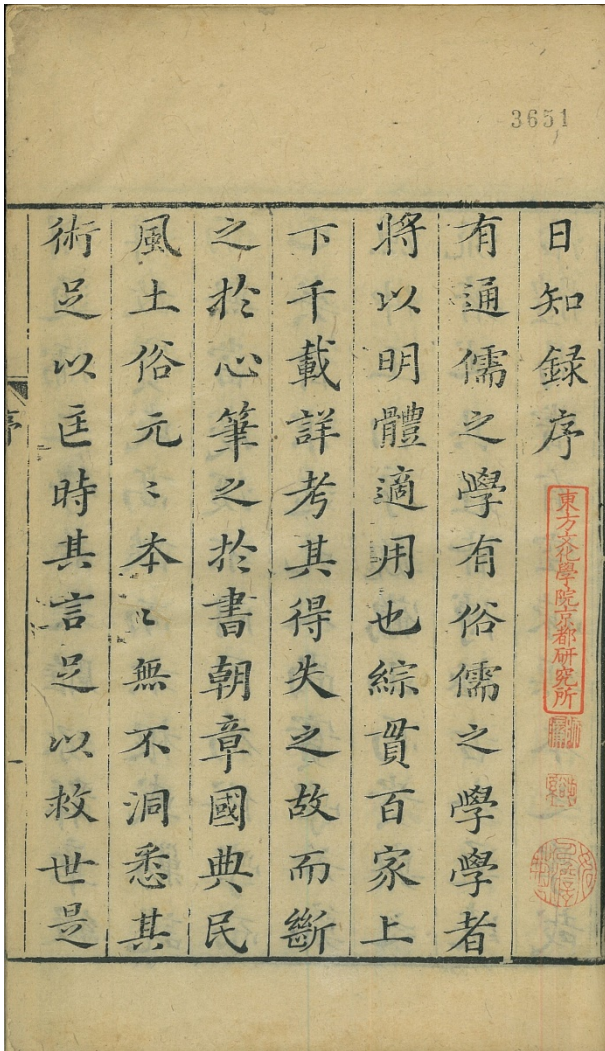 3651
日知録序
東方文化學院京都研究所
有通儒之學有俗儒之學學者
將以明體適用也綜貫百家上
下千載詳考其得失之故而斷
之於心筆之於書朝章國典民
風土俗元〻本〻無不洞悉其
術足以匡時其言足以救世是
序
一